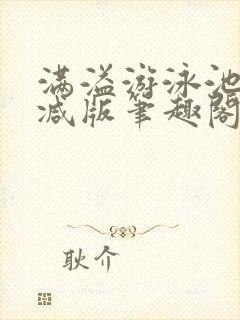 满溢游泳池
减版笔趣阁
耿介